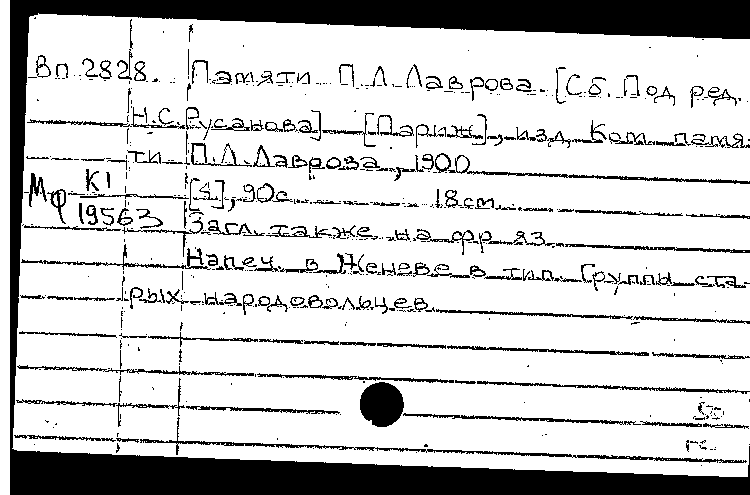 Вп 2828. Памяти П.Л.Лаврова. [Сб. Под ред.
Н.С.Русанова] [Париж], изд. Ком. памя-
ти П.Л.Лаврова, 1900
[4], 90с. 18см.
Мф К1
19563
Загл. также на фр яз.
Напеч. в Женеве в тип. Группы ста-
рых народовольцев.